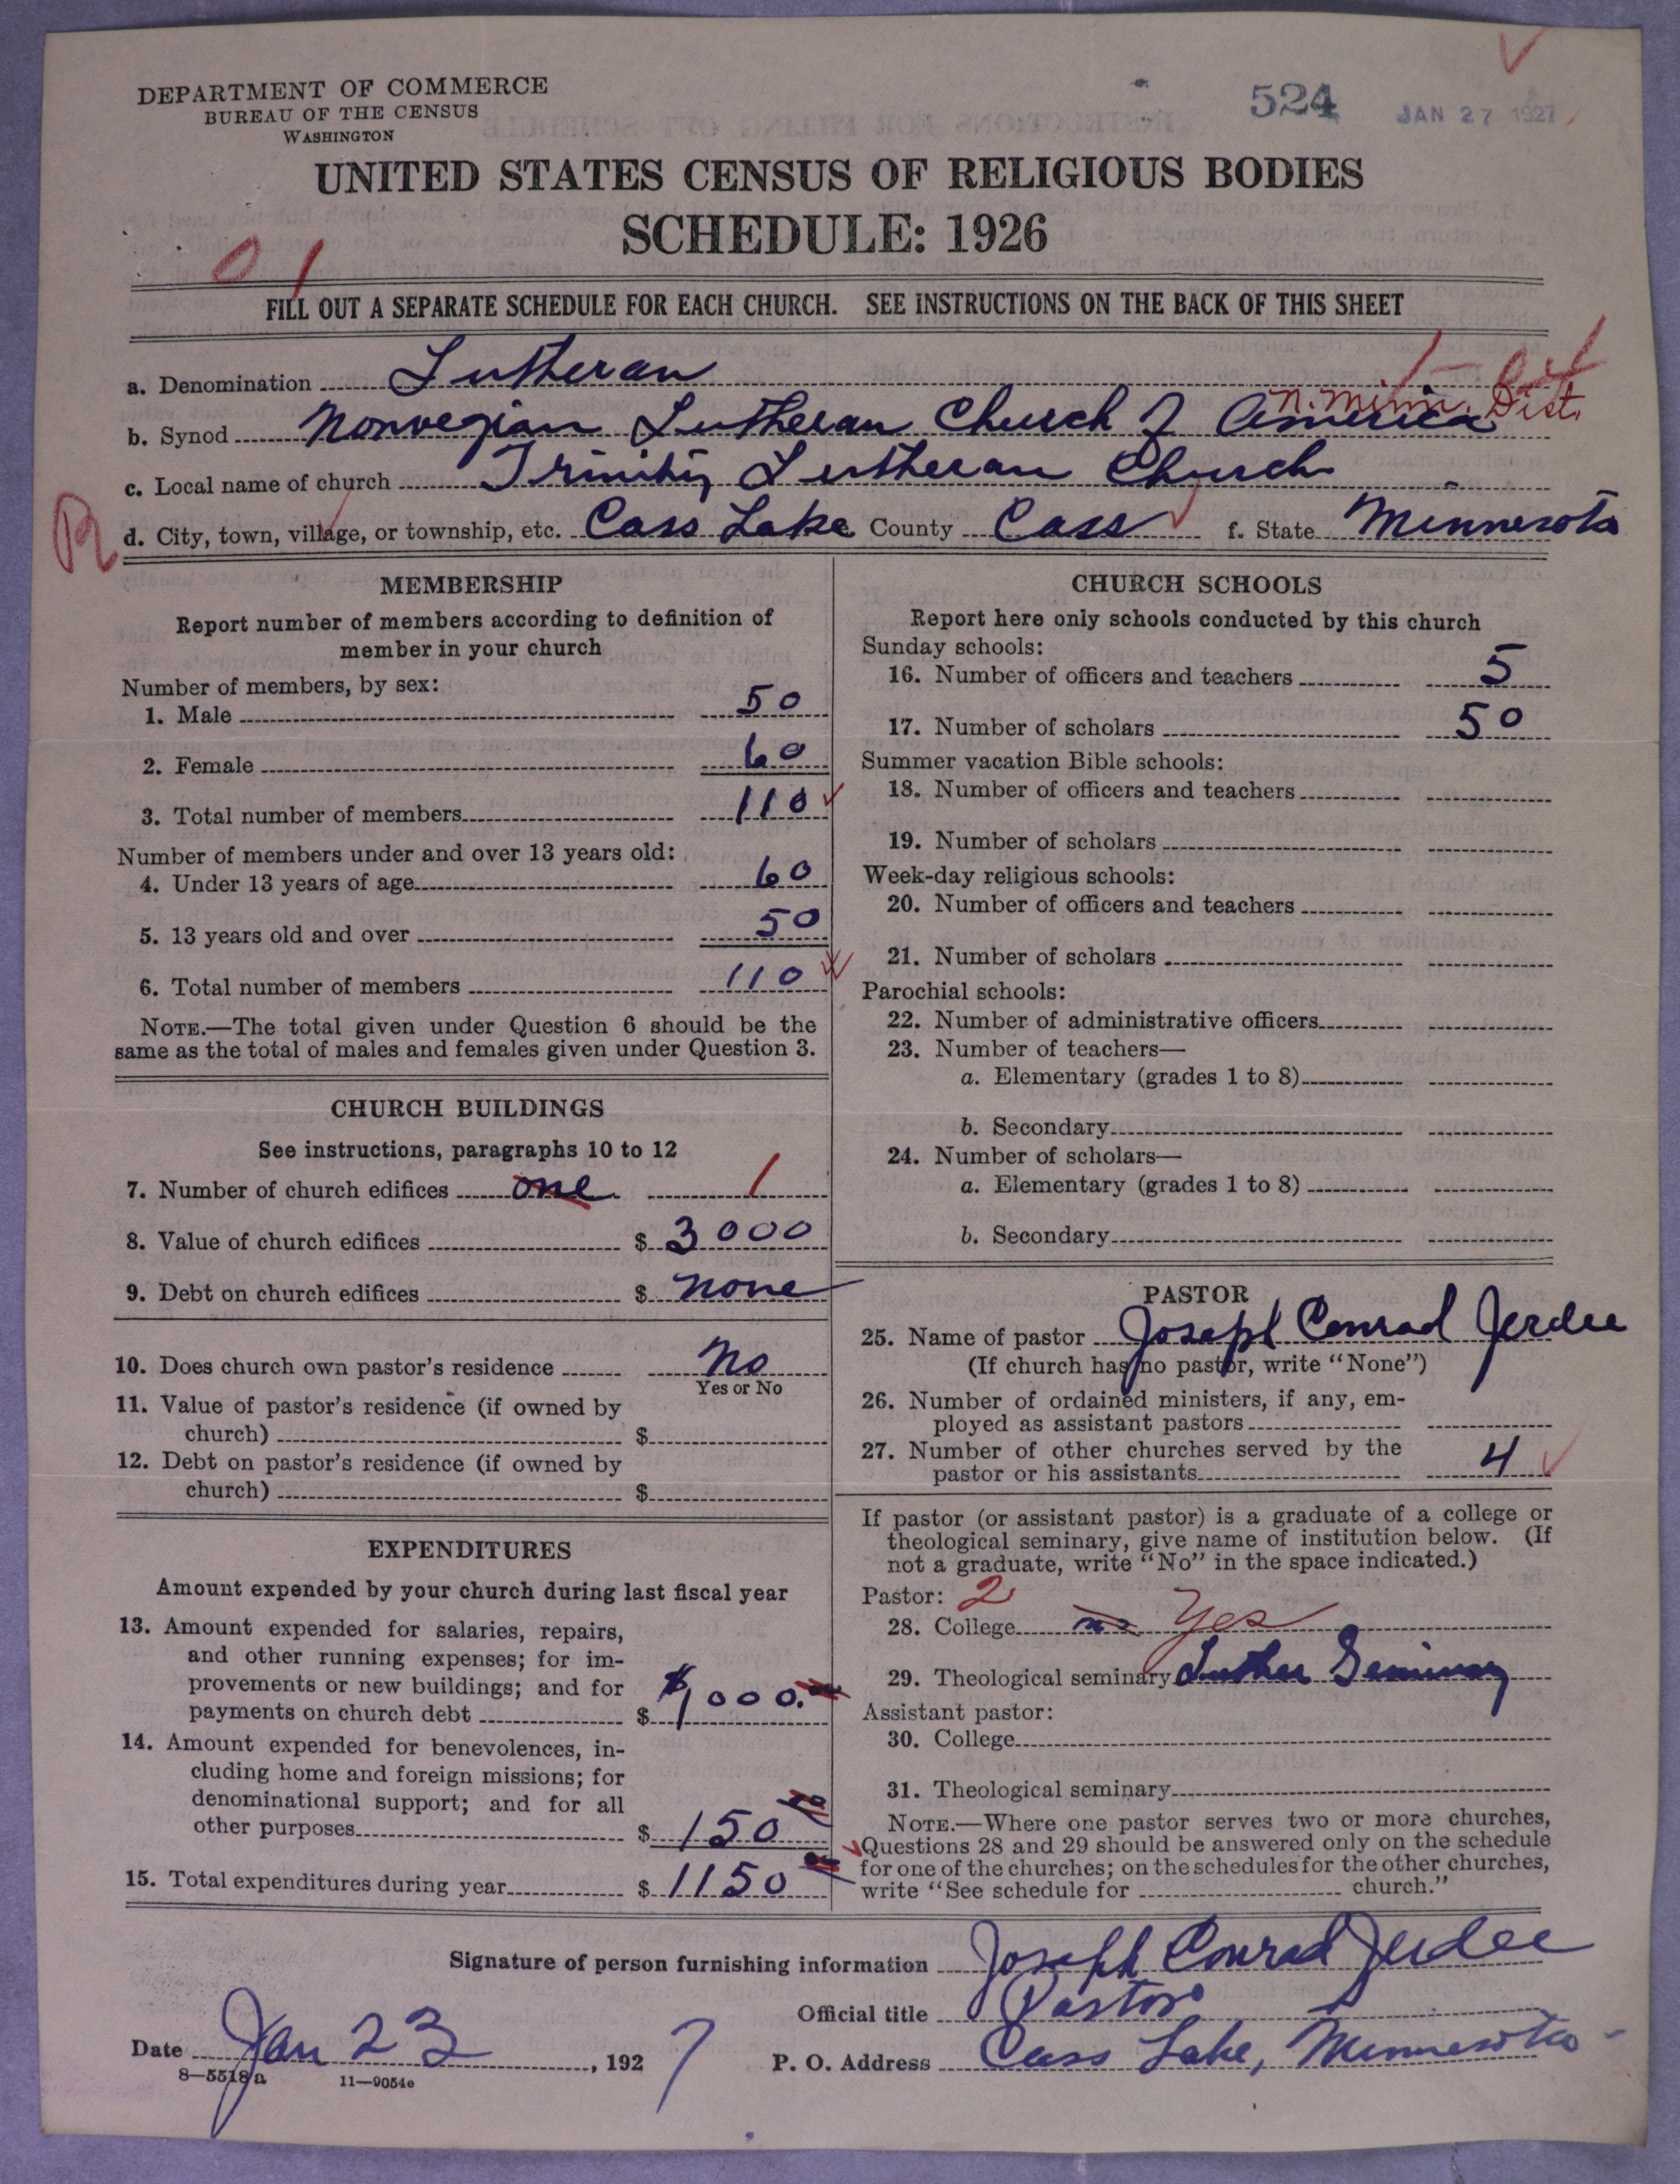 DEPARTMENT OF COMMERCE
BUREAU OF THE CENSUS
WASHINGTON
524
JAN 27 1927
UNITED STATES CENSUS OF RELIGIOUS BODIES
SCHEDULE: 1926
01
FILL OUT A SEPARATE SCHEDULE FOR EACH CHURCH. SEE INSTRUCTIONS ON THE BACK OF THIS SHEET
a. Denomination Lutheran
N. Minn. Dist.
b. Synod Norwegian Lutheran Church of America
c. Local name of church Trinity Lutheran Church
R
d. City, town, village, or township, etc. Cass Lake County Cass f. State Minnesota
MEMBERSHIP
Report number of members according to definition of
member in your church
Number of members, by sex:
1. Male 50
2. Female 60
3. Total number of members 110
Number of members under and over 13 years old:
4. Under 13 years of age 60
5. 13 years old and over 50
6. Total number of members 110
NOTE.—The total given under Question 6 should be the
same as the total of males and females given under Question 3.
CHURCH BUILDINGS
See instructions, paragraphs 10 to 12
7. Number of church edifices one 1
8. Value of church edifices $ 3000
9. Debt on church edifices $ none
10. Does church own pastor's residence no
Yes or No
11. Value of pastor's residence (if owned by
church) $
12. Debt on pastor's residence (if owned by
church) $
EXPENDITURES
Amount expended by your church during last fiscal year
13. Amount expended for salaries, repairs,
and other running expenses; for im-
provements or new buildings; and for
payments on church debt $ $1000.
14. Amount expended for benevolences, in-
cluding home and foreign missions; for
denominational support; and for all
other purposes $ 150
15. Total expenditures during year $ 1150
CHURCH SCHOOLS
Report here only schools conducted by this church
Sunday schools:
16. Number of officers and teachers 5
17. Number of scholars 50
Summer vacation Bible schools:
18. Number of officers and teachers
19. Number of scholars
Week-day religious schools:
20. Number of officers and teachers
21. Number of scholars
Parochial schools:
22. Number of administrative officers
23. Number of teachers—
a. Elementary (grades 1 to 8)
b. Secondary
24. Number of scholars—
a. Elementary (grades 1 to 8)
b. Secondary
PASTOR
25. Name of pastor Joseph Conrad Jerdee
(If church has no pastor, write "None")
26. Number of ordained ministers, if any, em-
ployed as assistant pastors
27. Number of other churches served by the
pastor or his assistants 4
If pastor (or assistant pastor) is a graduate of a college or
theological seminary, give name of institution below. (If
not a graduate, write "No" in the space indicated.)
Pastor: 2
28. College no Yes
29. Theological seminary Luther Seminary
Assistant pastor:
30. College
31. Theological seminary
NOTE.—Where one pastor serves two or more churches,
Questions 28 and 29 should be answered only on the schedule
for one of the churches; on the schedules for the other churches,
write "See schedule for church."
Signature of person furnishing information Joseph Conrad Jerdee
Official title Pastor
Date Jan 23, 1927
P. O. Address Cass Lake, Minnesota
8—5518a
11—9054c